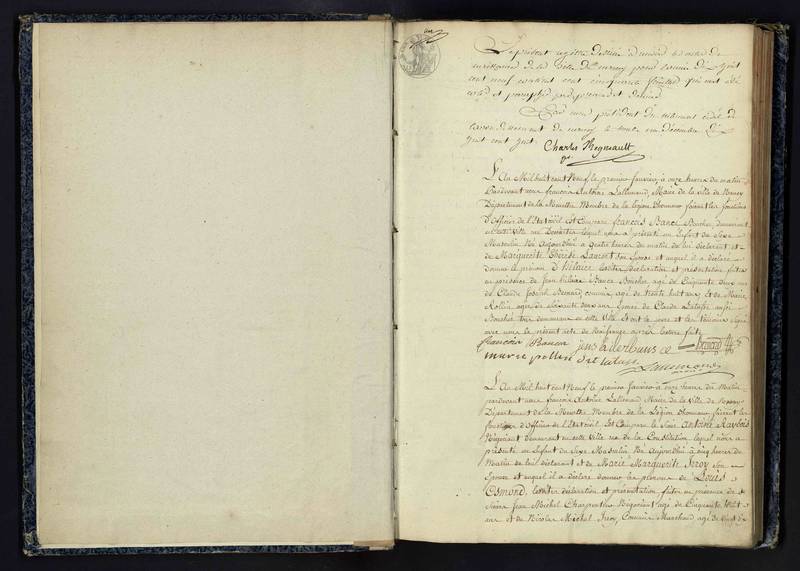 Le présent registre destiné à
de la Ville de pour l'année
cent neuf contient cent cinquante feuillets qui ont été
et paraphé
Par nous président du tribunal civil de
l'arrondissement de Nancy le trente un Décembre
huit cent huit Charles Regneault
L'An Mil huit cent Neuf le premier Janvier, à onze heures du matin
Pardevant nous françois Antoine Lallemand, Maire de la ville de Nancy
Département de la Meurthe Membre de la Légion d'honneur faisant les fonctions
d'Officier de l'Etat civil Est Comparu françois Bance Boucher, demeurant
en cette Ville rue lequel nous a présenté un Enfant du Sexe
Masculin Né Aujourd'hui à quatre heures du matin de lui déclarant et
de Marguerite Thérèse Laurent Son Epouse et auquel il a déclaré
donner le prénom d'Hilaire lesdites déclaration et présentation faites
en présence de Jean Hilaire Bance Boucher agé de Cinquante deux ans
de Claude Joseph Bernard commis, agé de trente huit ans Et de Marie
Rollin agée de Soixante deux ans Epouse de Claude aussi
Boucher tous demeurans en cette Ville. Et ont le père et les témoins signé
avec nous le présent acte de Naissance après lecture faite
françois Bance
Lallemand
L'An Mil huit cent Neuf le premier Janvier à onze heures du Matin
pardevant nous françois Antoine Lallemand, Maire de la Ville de Nancy
Département de la Meurthe Membre de la Légion d'honneur faisant les
fonctions d'Officier de l'Etat civil Est Comparu le Sieur Antoine
Négociant demeurant en cette Ville rue de la Constitution lequel nous a
présenté un Enfant du Sexe Masculin Né Aujourd'hui à cinq heures du
Matin de lui déclarant et de Marie Marguerite Son
Epouse et auquel il a déclaré donner les prénoms de Louis
Osmond, lesdites déclaration et présentation faites en présence de
Sieurs Jean Michel Charpentier Négociant agé de Cinquante huit
ans et de Nicolas Michel Commis Marchand, agé de vingt